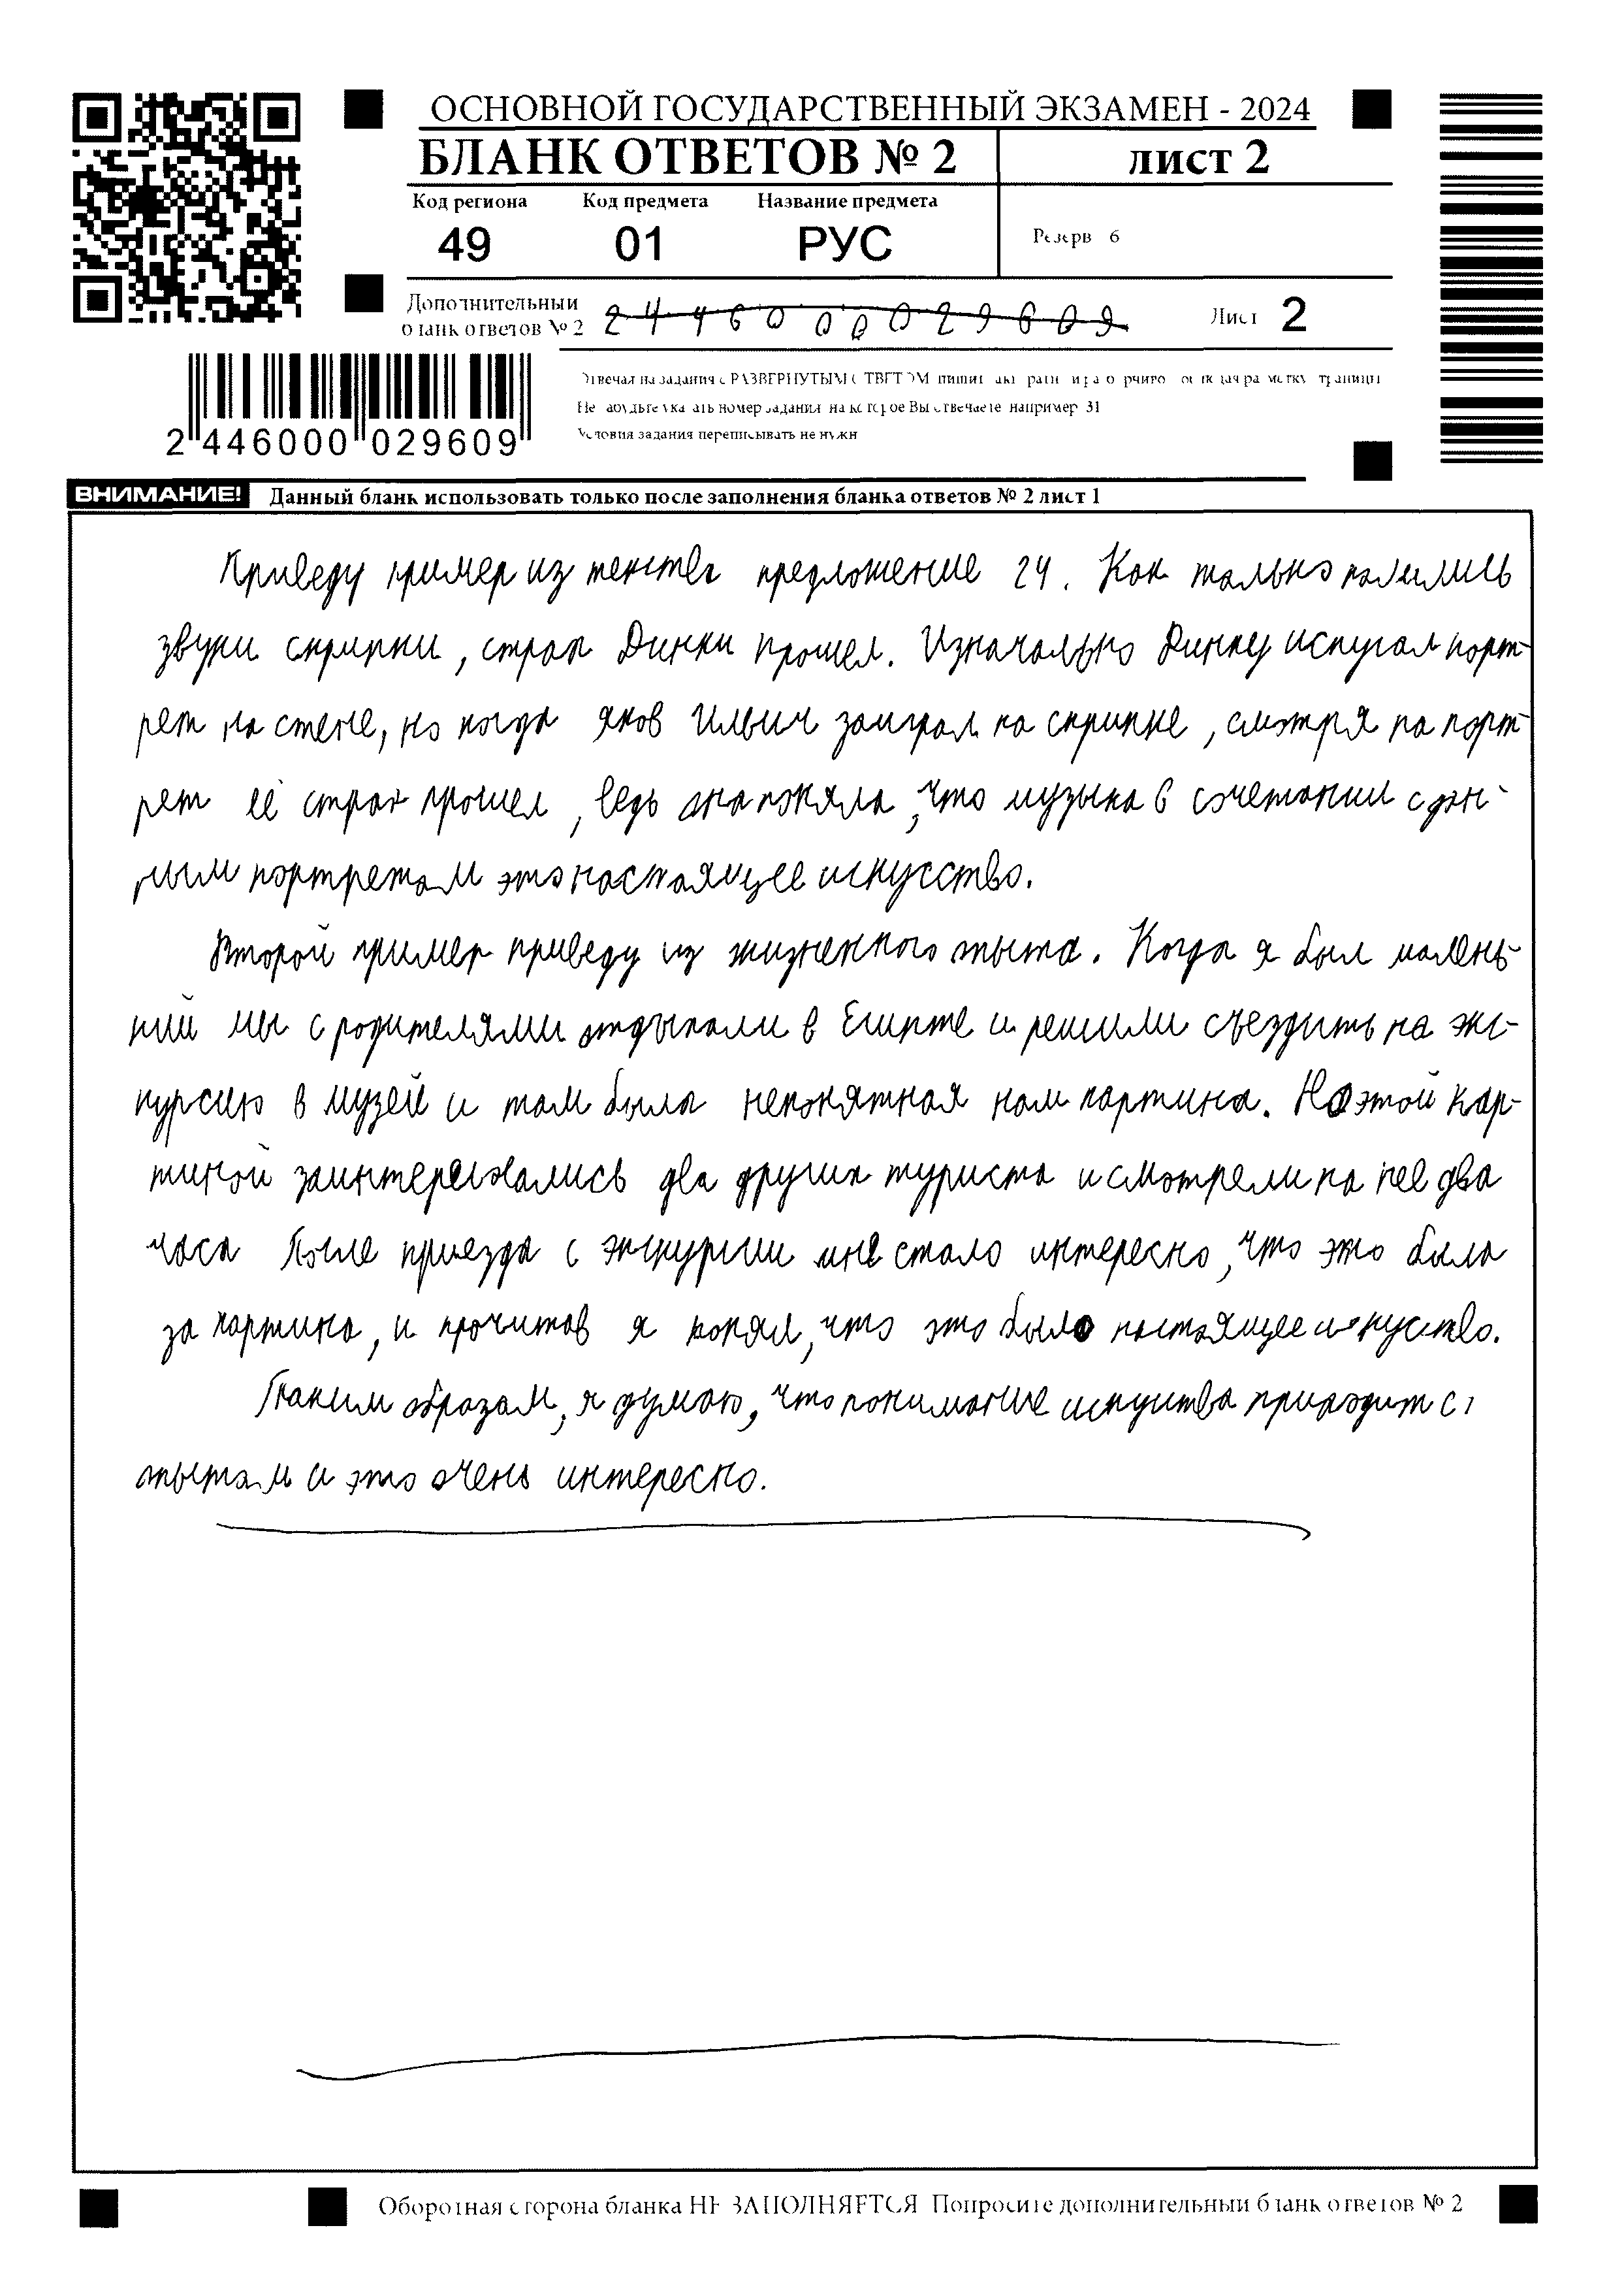 ОСНОВНОЙ ГОСУДАРСТВЕННЫЙ ЭКЗАМЕН - 2024
БЛАНК ОТВЕТОВ № 2
лист 2
Код региона Код предмета Название предмета
49 01 РУС
Резерв 6
Дополнительный
бланк ответов № 2 2446000029609
Лист 2
2 446000 029609
Отвечая на задания с РАЗВЕРНУТЫМ ОТВЕТОМ пишите
Не указать номер задания на которое Вы отвечаете например 31
Условия задания переписывать не нужн
ВНИМАНИЕ! Данный бланк использовать только после заполнения бланка ответов № 2 лист 1
Приведу пример из текста предложение 24. Как только полились
звуки скрипки, страх Динки прошел. Изначально Динку испугал порт-
рет на стене, но когда Яков Ильич заиграл на скрипке, смотря на порт-
рет её страх прошел, ведь она поняла, что музыка в сочетании с дан-
ным портретом это настоящее искусство.
Второй пример приведу из жизненного опыта. Когда я был малень-
кий мы с родителями отдыхали в Египте и решили съездить на экс-
курсию в музей и там была непонятная нам картина. На этой кар-
тиной заинтересовались два других туриста и смотрели на нее два
часа После приезда с экскурсии мне стало интересно, что это была
за картина, и прочитав я понял, что это было настоящее искуство.
Таким образом, я думаю, что понимание искуства приходит с
опытом и это очень интересно.
Оборотная сторона бланка НЕ ЗАПОЛНЯЕТСЯ Попросите дополнительный бланк ответов № 2